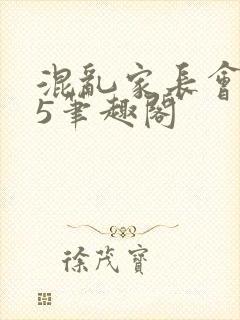 混亂家長會
5筆趣閣
徐茂寶